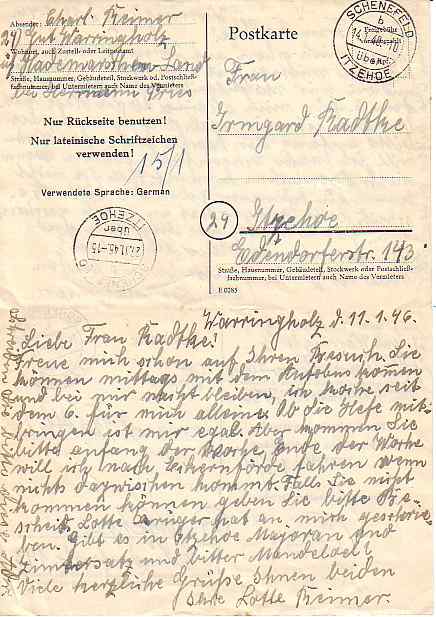 Absender: Charl. Reimer
24) Gut Warringholz
Wohnort, auch Zustell- oder Leitpostamt
üb Hademarschen Land
Straße, Hausnummer, Gebäudeteil, Stockwerk od. Postschließ-
fachnummer; bei Untermietern auch Name des Vermieters
bei Herrmann
Nur Rückseite benutzen!
Nur lateinische Schriftzeichen
verwenden!
15/1
Verwendete Sprache: German
ITZEHOE
über
Postkarte
SCHENEFELD
b
über
ITZEHOE
Frau
Irmgard Radtke
24
Itzehoe
Edendorferstr. 143
Straße, Hausnummer, Gebäudeteil, Stockwerk oder Postschließ-
fachnummer; bei Untermietern auch Name des Vermieters
Warringholz d. 11.1.46.
Liebe Frau Radtke!
Freue mich schon auf Ihren Besuch. Sie
können mittags mit dem Autobus kommen
und bei mir nacht bleiben, ich wohne seit
dem 6. für mich alleine. Ob Sie Hefe mit-
bringen ist mir egal. Aber kommen Sie
bitte anfang der Woche, Ende der Woche
will ich nach Eckernförde fahren wenn
nichts dazwischen kommt. Falls Sie nicht
kommen können geben Sie bitte Be-
scheid. Lotte hat an mich geschrie-
ben. Gibt es in Itzehoe Majoran und
Zimtersatz und bitter Mandeloel?
Viele herzliche Grüße Ihnen beiden
Ihre Lotte Reimer.